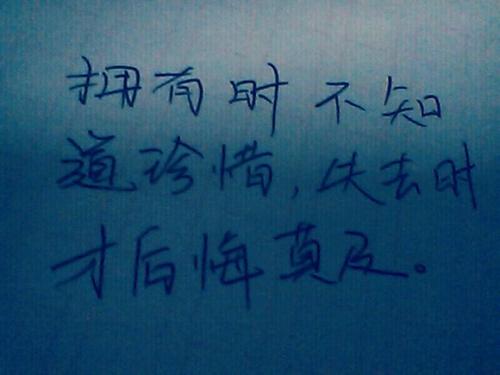 拥有时不知
道珍惜，失去时
才后悔莫及。